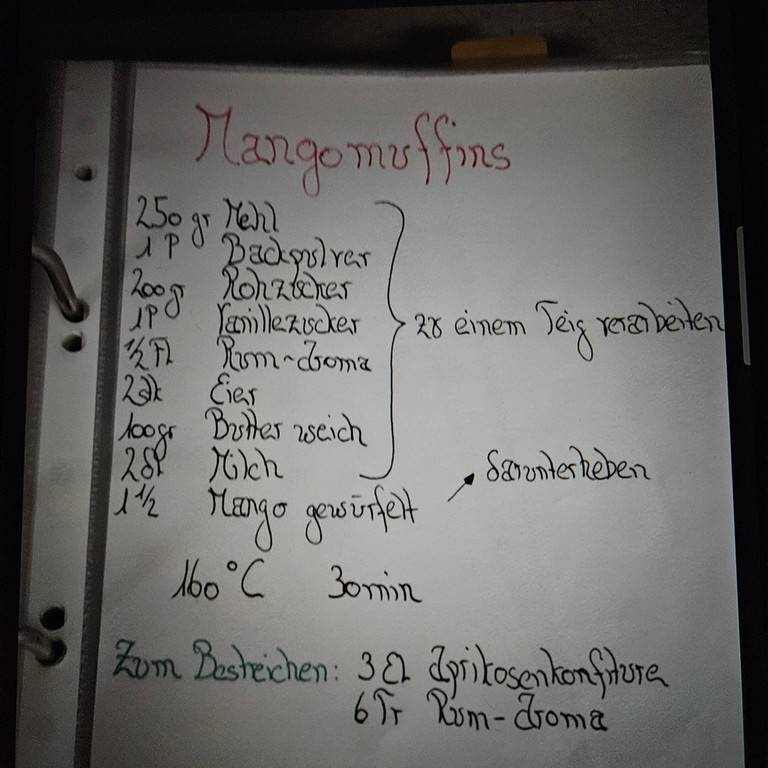 Mangomuffins
250 gr Mehl
1 P Backpulver
200 gr Rohrzucker
1 P Vanillezucker
1/2 Fl Rum-Aroma
2 Stk Eier
100 gr Butter weich
Milch
zu einem Teig verarbeiten
1 1/2 Mango gewürfelt
darunterheben
160°C 30 min
Zum Bestreichen: 3 El Aprikosenkonfitüre
6 Tr Rum-Aroma